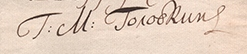 Г: М: Головкинъ